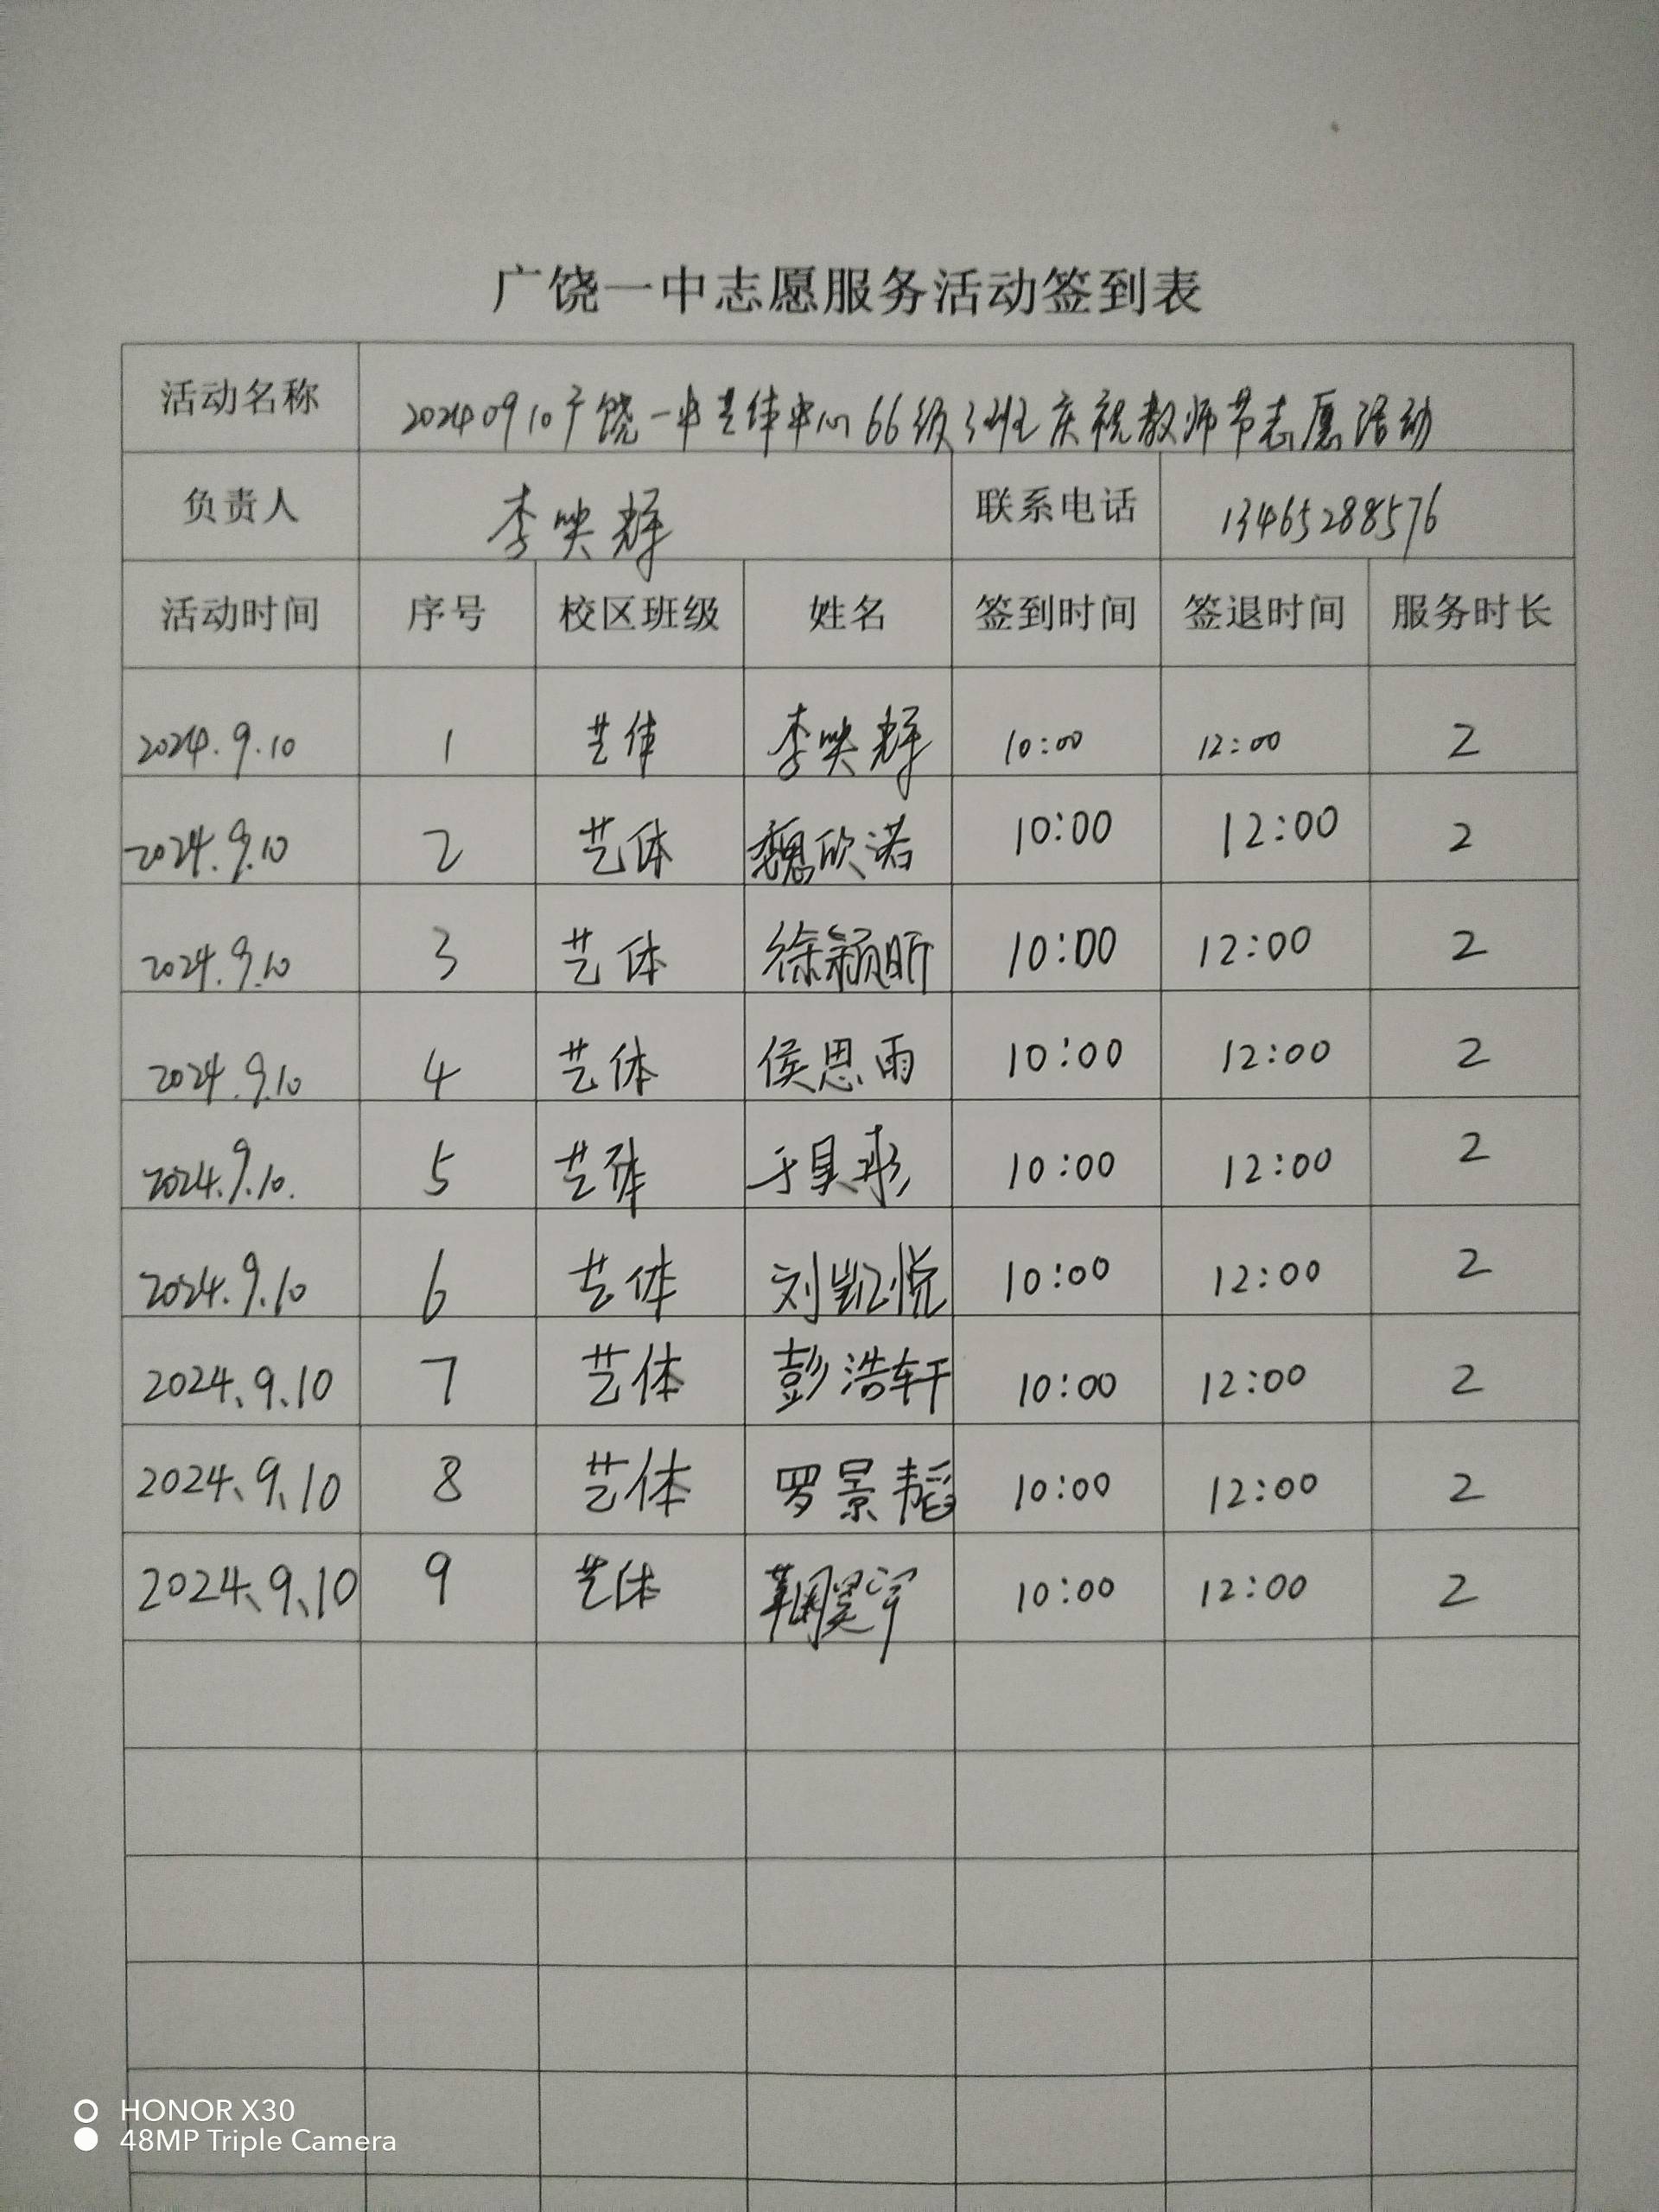 广饶一中志愿服务活动签到表
活动名称 20240910广饶一中艺体中心66级3班庆祝教师节志愿活动
负责人 李映辉 联系电话 13465288576
活动时间 序号 校区班级 姓名 签到时间 签退时间 服务时长
2024.9.10 1 艺体 李映辉 10:00 12:00 2
2024.9.10 2 艺体 魏欣诺 10:00 12:00 2
2024.9.10 3 艺体 徐颖昕 10:00 12:00 2
2024.9.10 4 艺体 侯思雨 10:00 12:00 2
2024.9.10. 5 艺体 于昊彤 10:00 12:00 2
2024.9.10 6 艺体 刘凯悦 10:00 12:00 2
2024、9、10 7 艺体 彭浩轩 10:00 12:00 2
2024、9、10 8 艺体 罗景韬 10:00 12:00 2
2024、9、10 9 艺体 10:00 12:00 2
HONOR X30
48MP Triple Camera